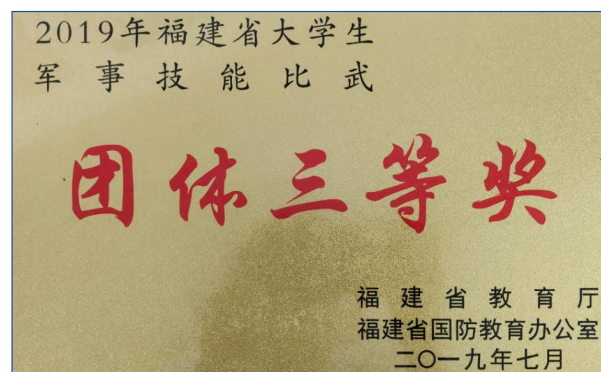 2019年福建省大学生
军事技能比武
团体三等奖
福建省教育厅
福建省国防教育办公室
二〇一九年七月